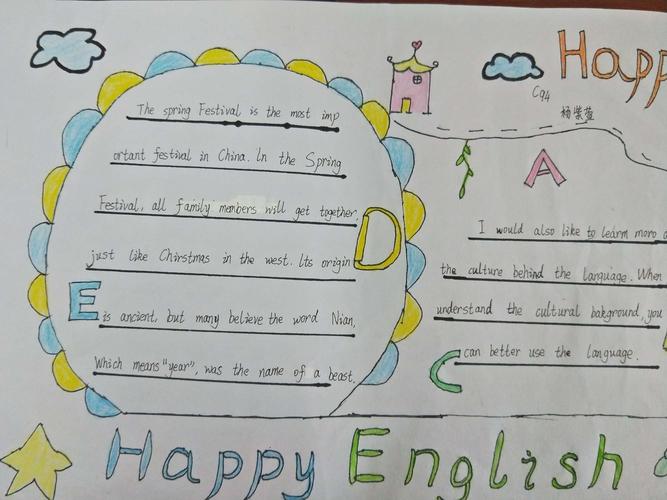 Happ
C94
杨紫萱
The spring Festival is the most imp
ortant festival in China. In the Spring
Festival, all family members will get together,
just like Chirstmas in the west. Its origin
is ancient, but many believe the word Nian,
Which means "year", was the name of a beast.
D
E
A
I would also like to learn more a
the culture behind the language. When
understand the cultural bakground, you
can better use the language.
C
Happy English